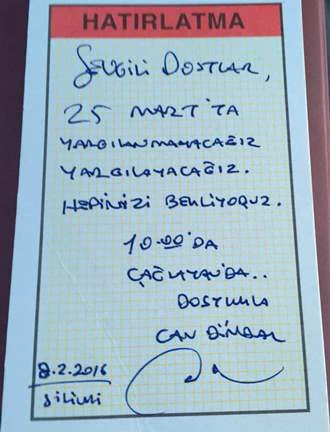 HATIRLATMA
SEVGİLİ DOSTLAR,
25 MART'TA
YARGILANMAYACAĞIZ
YARGILAYACAĞIZ.
HEPİNİZİ BEKLİYORUZ.
10.00'DA
ÇAĞLAYAN'DA..
DOSTLUKLA
CAN DÜNDAR
8.2.2016
SİLİVRİ